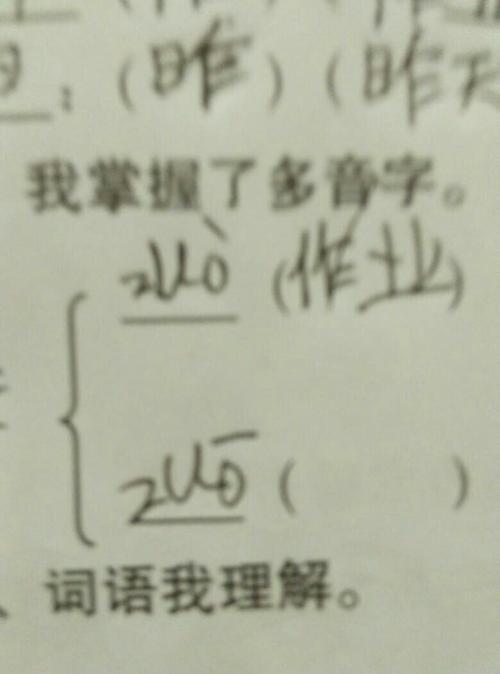 ：（昨）（昨天
我掌握了多音字。
zuò（作业）
zuō（　　）
词语我理解。